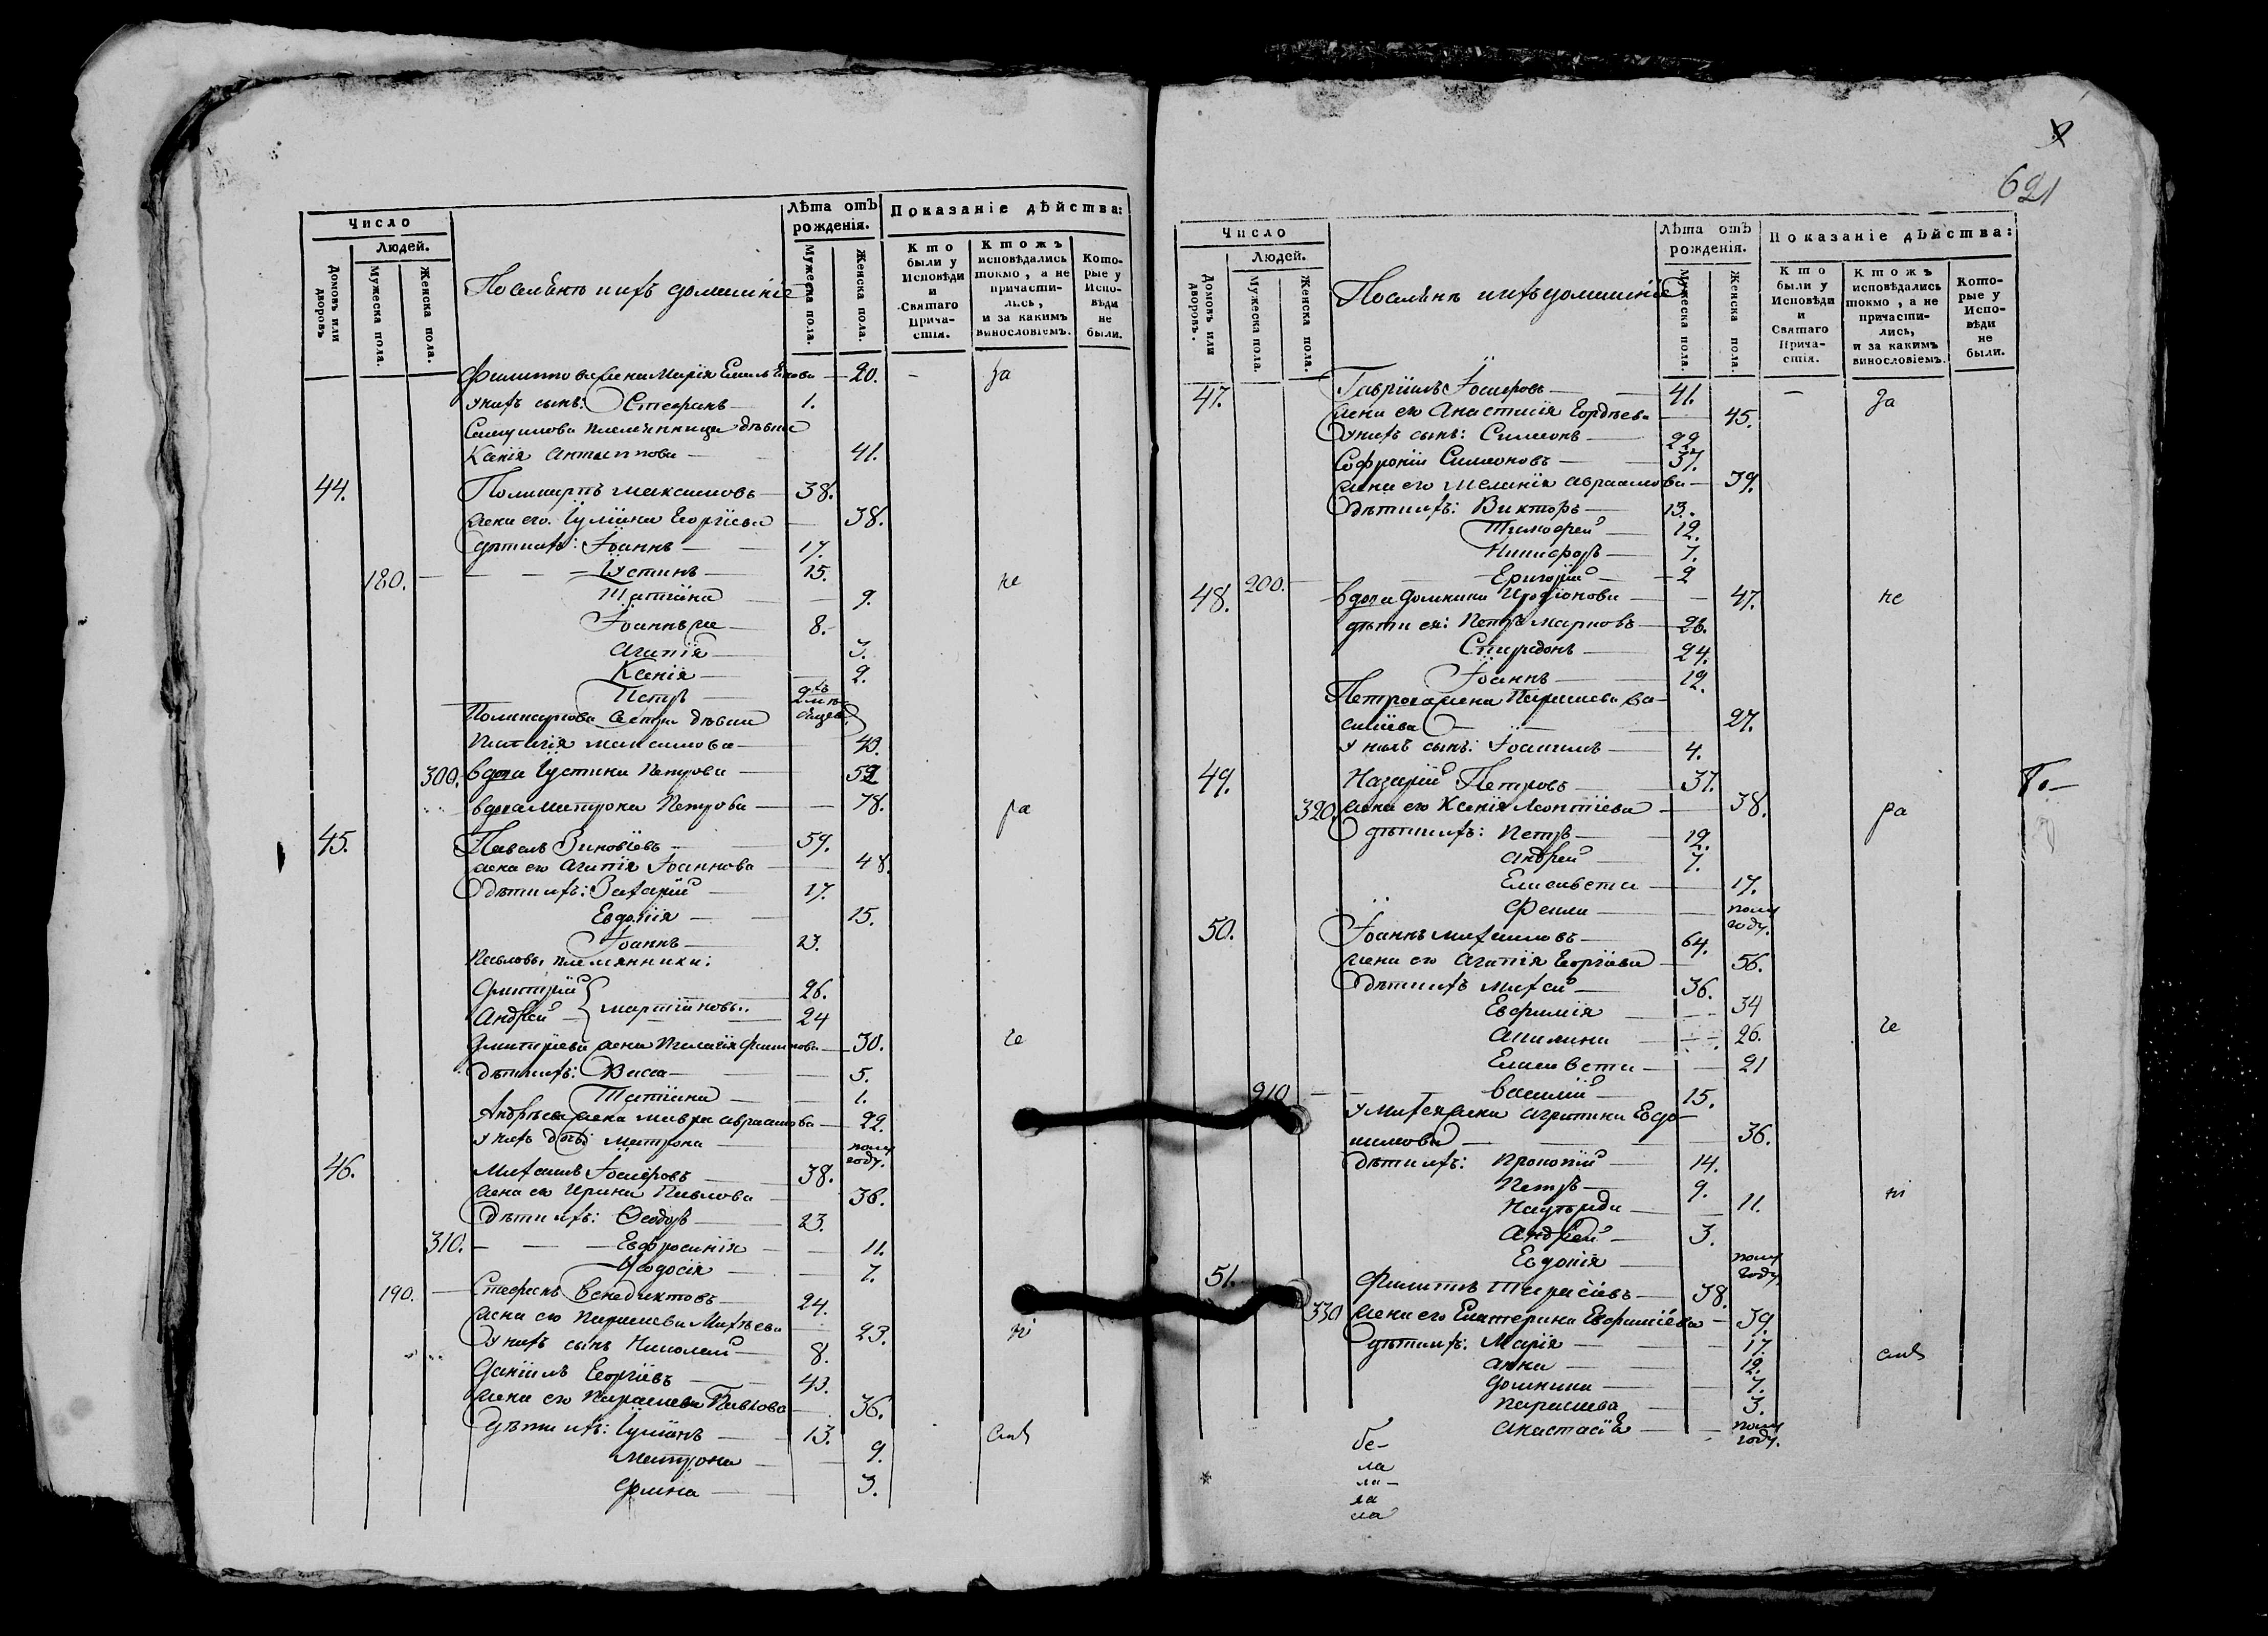 Число
Людей.
Домовъ или дворовъ
Мужеска пола.
Женска пола.
Лѣта отъ рожденія.
Мужеска пола.
Женска пола.
Показаніе дѣйства:
Кто были у Исповѣди и Святаго Прича-стія.
Ктожъ исповѣдались токмо, а не причасти-лись, и за какимъ винословіемъ.
Кото-рые у Испо-вѣди не были.
Поселяне и ихъ домашніе
Филиппова жена Марія — 20. — За
у нихъ сынъ: Стефанъ — 1.
племянница дѣвка
Ксенія Антиппова — 41.
44. Поликарпъ Максимовъ — 38.
жена его Іуліана Георгіева — 38.
дѣти ихъ: Іоаннъ — 17.
180. — Іустинъ — 15. не
Татіана — 9.
Іоаннъ же — 8.
Агапія — 3.
Ксенія — 2.
Петръ
Поликарпова сестра дѣвка
Пелагія Максимова — 43.
300. вдова Іустина Петрова — 52
вдова Матрона Петрова — 78. ра
45. Павелъ Зиновіевъ — 59.
жена его Агапія Іоаннова — 48.
дѣти ихъ: Захарій — 17.
Евдокія — 15.
Іоаннъ — 23.
Павловы племянники:
Димитрій — 26.
Андрей } Мартиновы. — 24
Димитріева жена Пелагія — 30. че
дѣти ихъ: Васса — 5.
Татіана — 1.
Андреева жена Мавра Авраамова — 22.
у нихъ дочь Матрона — полу году.
46. Михаилъ Іосифовъ — 38.
жена его Ирина Павлова — 36.
дѣти ихъ: Ѳеодоръ — 23.
310. — Евфросинія — 11.
Ѳеодосія — 7.
190. — Стефанъ Венедиктовъ — 24.
жена его Параскева Михѣева — 23. ні
у нихъ сынъ Николай — 8.
Даніилъ Георгіевъ — 43.
жена его Параскева Павлова — 36.
дѣти ихъ: Іуліанъ — 13. емъ
Матрона — 9.
3.
621
Число
Людей.
Домовъ или дворовъ.
Мужеска пола.
Женска пола.
Лѣта отъ рожденія.
Мужеска пола.
Женска пола.
Показаніе дѣйства:
Кто были у Исповѣди и Святаго Прича-стія.
Ктожъ исповѣдались токмо, а не причасти-лись, и за какимъ винословіемъ.
Кото-рые у Испо-вѣди не были.
Поселяне и ихъ домашніе
47. Гавріилъ Іосифовъ — 41. — За
жена его Анастасія Гордѣева — 45.
у нихъ сынъ: Симеонъ — 22
Софроній Симеоновъ — 37.
жена его Меланія Авраамова — 39.
дѣти ихъ: Викторъ — 13.
Тимофей — 12.
Никифоръ — 7.
200. — Григорій — 2
48. вдова Домникія Иродіонова — 47. не
дѣти ея: Петръ Марковъ — 26.
Спиридонъ — 24.
Іоаннъ — 12.
Петрова жена Параскева Ва-
силіева — 27.
у нихъ сынъ: Іоакимъ — 4.
49. Назарій Петровъ — 37. По-
320. жена его Ксенія Леонтіева — 38. ра
дѣти ихъ: Петръ — 12.
Андрей — 7.
Елисавета — 17.
Фекла — полу году.
50. Іоаннъ Михаиловъ — 64.
жена его Агапія Георгіева — 56.
дѣти ихъ Михей — 36.
Евфимія — 34
Акилина — 26. че
Елисавета — 21
210 — Василій — 15.
у Михея жена Агрипина Евдо-
кимова — 36.
дѣти ихъ: Прокопій — 14.
Петръ — 9.
11. ні
Андрей — 3.
Евдокія — полу году
51. Филиппъ Тарасіевъ — 38.
330 жена его Екатерина Евфиміева — 39.
дѣти ихъ: Марія — 17.
Анна — 12. емъ
Домникія — 7.
Параскева — 3.
Анастасія — полу году.
бе-
ла
ла-
ла
ла